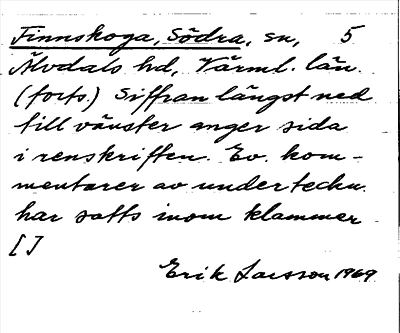 Finnskoga, Södra, sn, 5
Älvdals hd, Värml. län.
(forts.) Siffran längst ned
till vänster anger sida
i renskriften. Ev. kom-
mentarer av underteckn.
har satts inom klammer
[ ]
Erik Larsson 1969